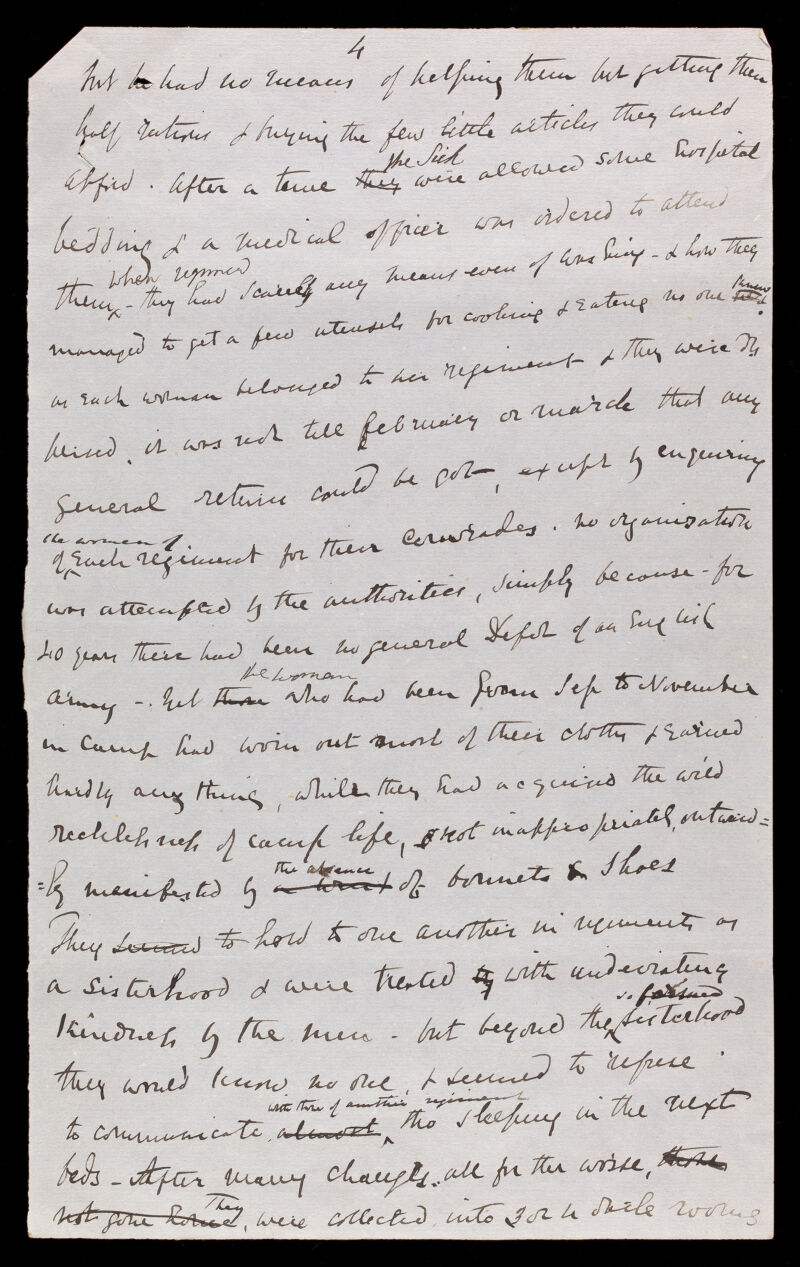 4
but he had no means of helping them but getting them
half rations & buying the few little articles they could
afford. After a time they the Sick were allowed some hospital
bedding & a medical officer was ordered to attend
them when required - they had scarcely any means even of washing - & how they
managed to get a few utensils for cooking & eating no one knew.
as each woman belonged to her regiment & they were dis
persed, it was not till February or March that any
general return could be got, except by enquiring
of the women of each regiment for their comrades. no organization
was attempted by the authorities, simply because - for
40 years there had been no general Depot of an English
army -. Yet those the women who had been from Sep to November
in camp had worn out most of their clothes & earned
hardly any thing, while they had acquired the wild
recklessness of camp life, not inappropriately, outward=
=ly manifested by a want the absence of bonnets & shoes
They seemed to hold to one another in regiments as
a sisterhood & were treated by with undeviating
kindness by the men - but beyond the so formed sisterhood
they would know no one, & seemed to refuse
to communicate, almost with those of another regiment, tho sleeping in the next
beds - After many changes, all for the worse, those
not gone home, They were collected into 3 or 4 dark rooms